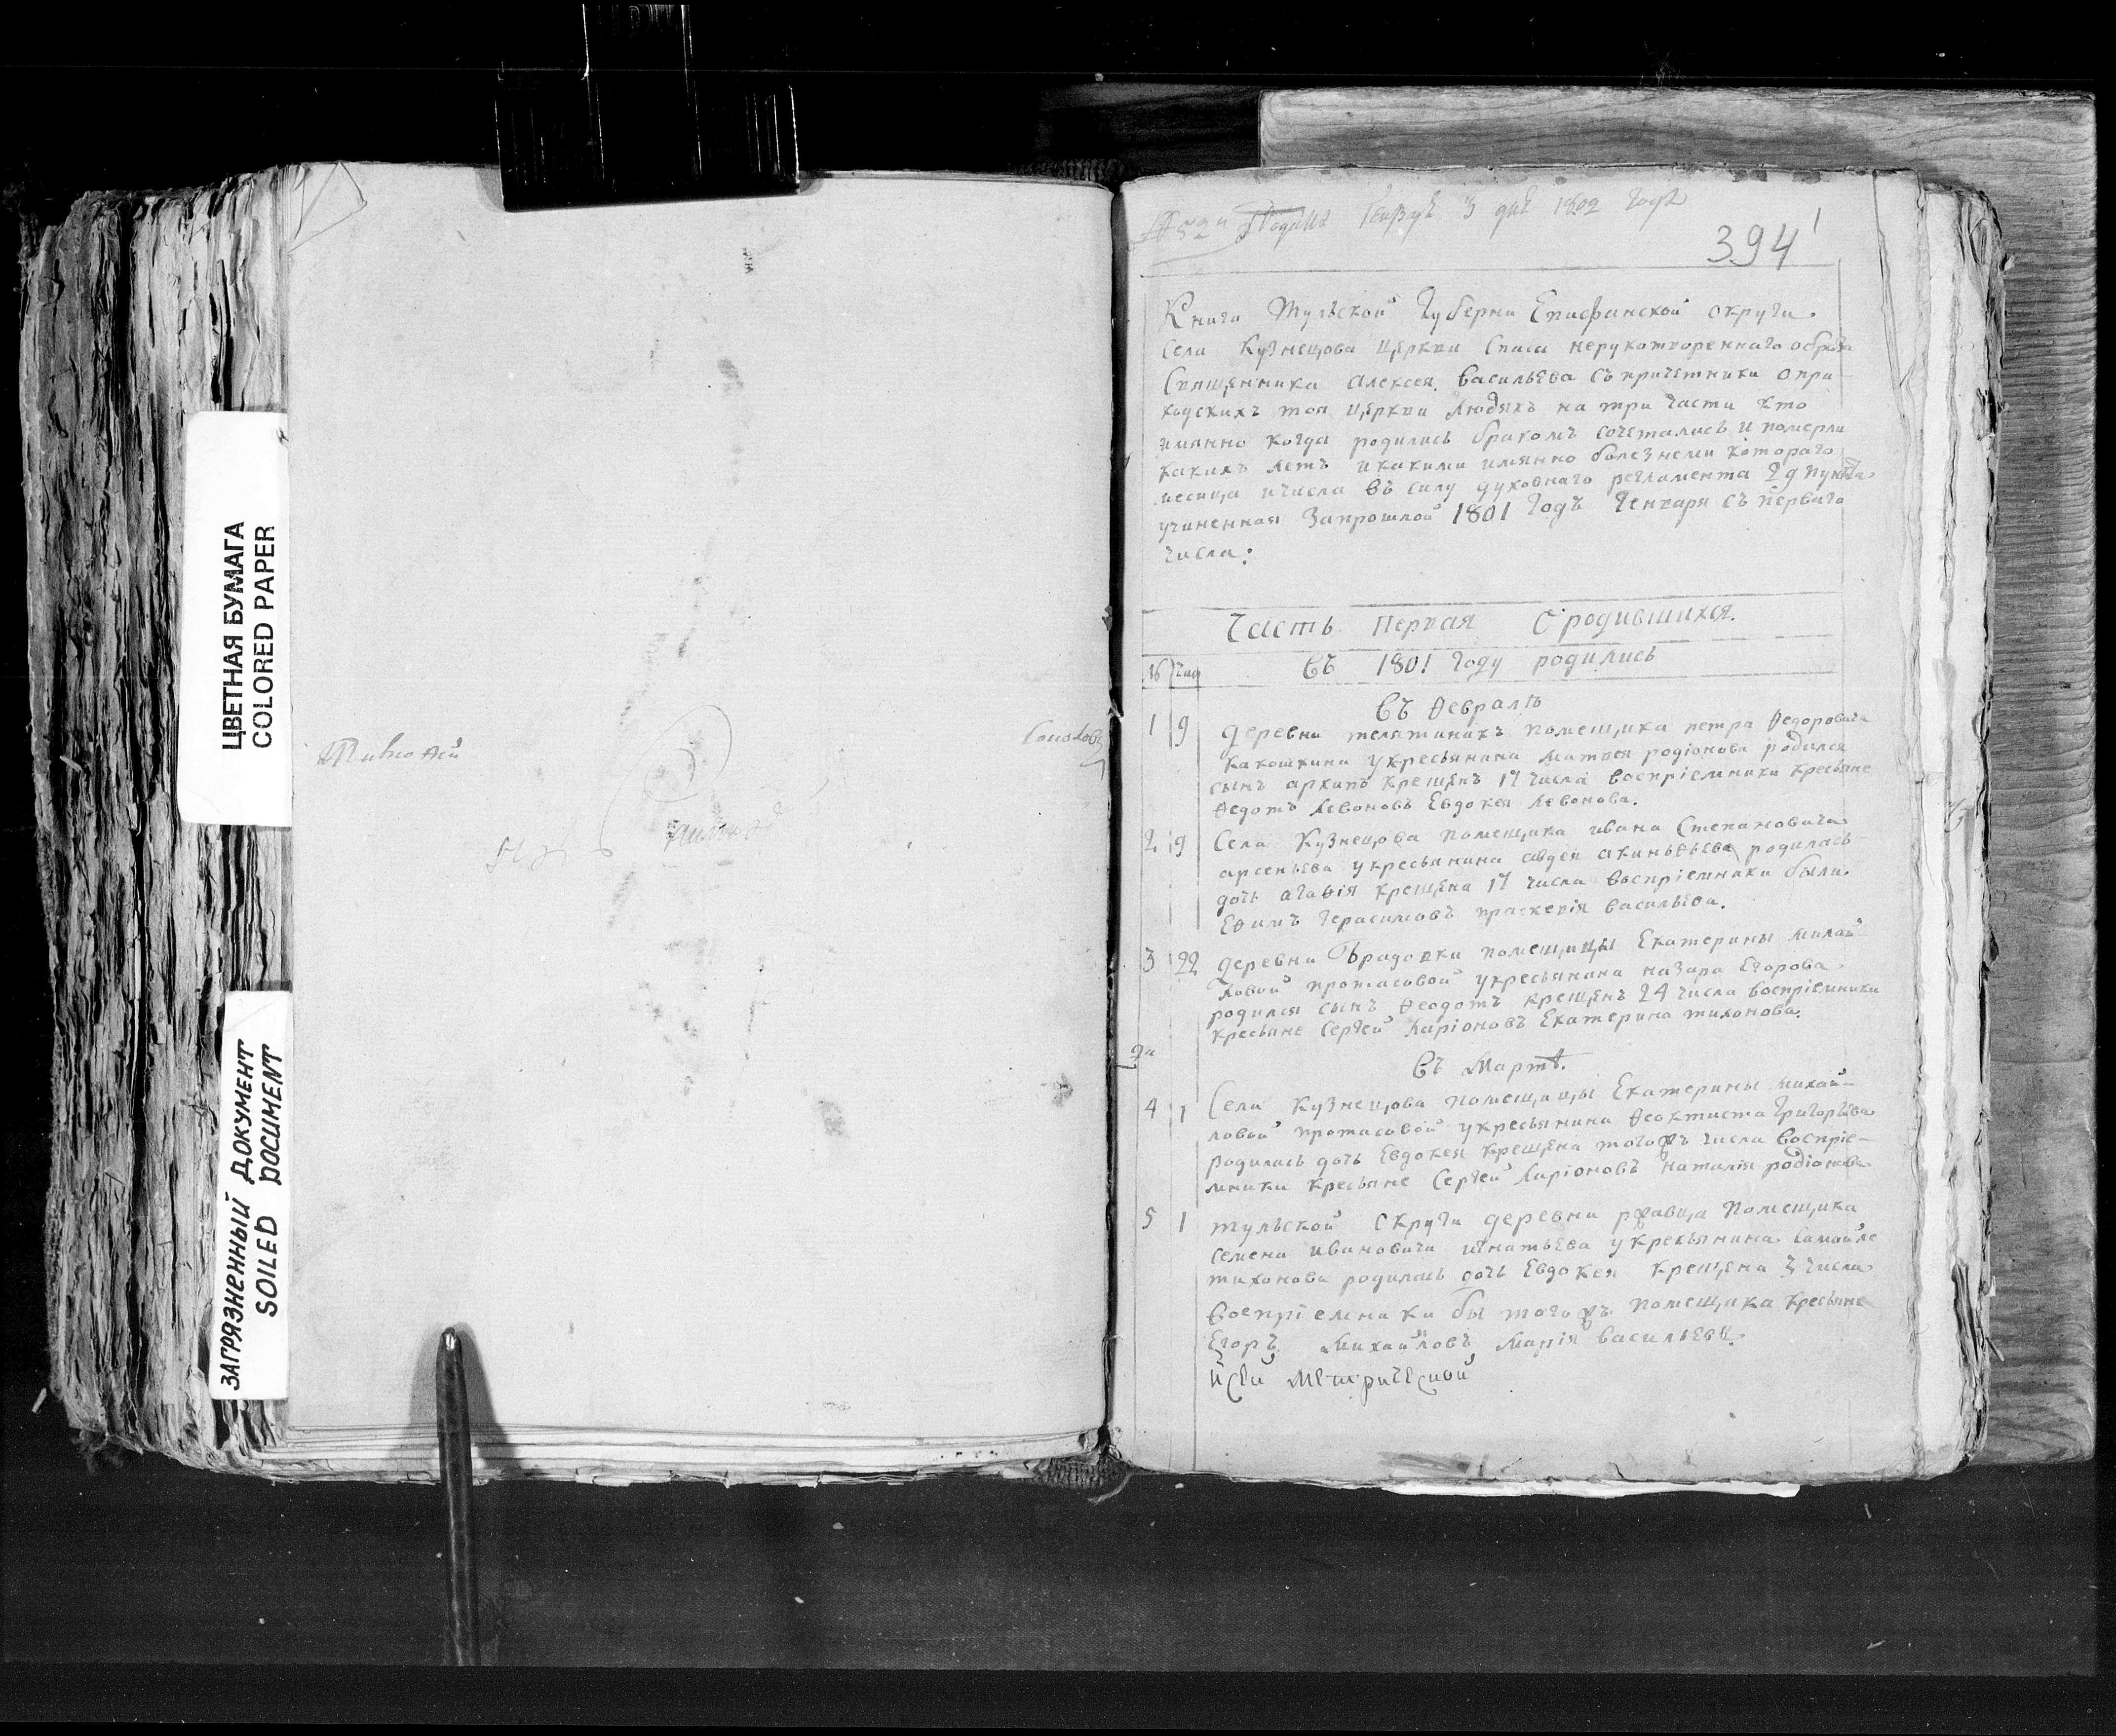 ЦВЕТНАЯ БУМАГА
COLORED PAPER
ЗАГРЯЗНЕННЫЙ ДОКУМЕНТ
SOILED DOCUMENT
Тимоѳей
3 дня 1802 года
394
Книга Тульской Губерни Епифанской округи
села Кузнецова церкви Спаса нерукотвореннаго образа
Священника алексея васильева съ причетники о при-
ходскихъ тоя церкви людяхъ на три части кто
имянно когда родились бракомъ сочетались и померли
какихъ летъ и какими имянно болезнеми котораго
месяца и числа въ силу духовнаго регламента 29 пункта
учиненная Запрошлой 1801 Годъ Генваря съ перваго
числа:
Часть Первая О родившихся.
№ Числ
въ 1801 году родились
въ ѳевралѣ
1 9 деревни телятинихъ помещика петра ѳедоровича
какошкина укресьянина матвея родіонова родился
сынъ архипъ крещенъ 17 числа воспріемники кресьяне
ѳедотъ левоновъ Евдокея левонова.
2 9 Села Кузнецова помещика ивана Степановича
арсеньева укресьянина авдея акиньѳьева родилась
дочь агаѳія крещена 17 числа воспріемники были
Еѳимъ Герасимовъ праскевія васильева.
3 22 деревни помещицы Екатерины михай
ловой протасовой укресьянина назара Егорова
родился сынъ ѳеодотъ крещенъ 24 числа воспріемники
кресьяне Сергей ларіоновъ Екатерина тихонова.
въ Мартѣ.
4 1 Села Кузнецова помещицы Екатерины михай-
ловой протасовой укресьянина ѳеоктиста григорьева
родилась дочь Евдокея крещена тогожъ числа воспріе-
мники кресьяне Сергей ларіоновъ наталія родіонова
5 1 тульской округи деревни ржавца помещика
семена ивановича игнатьева укресьянина самойле
тихонова родилась дочь Евдокея крещена 3 числа
воспріемники бы тогожъ помещика кресьяне
Егоръ Михайловъ Марія васильева.
йсей метрической